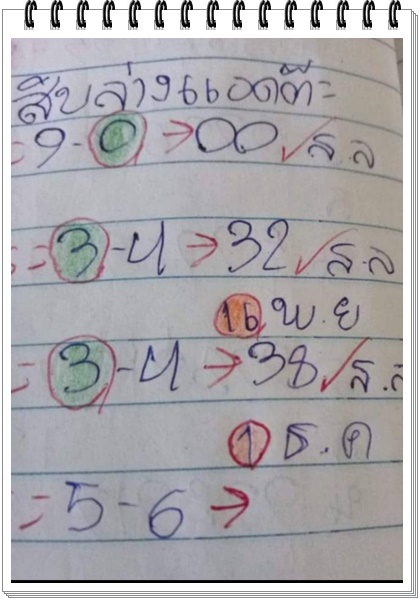 สิบล่างแอดต๊ะ
= 9-0 → 00 ✓ ส.ล
= 3-4 → 32 ✓ ส.ล
16 พ.ย
= 3-4 → 38 ✓ ส.ล
1 ธ.ค
= 5-6 →